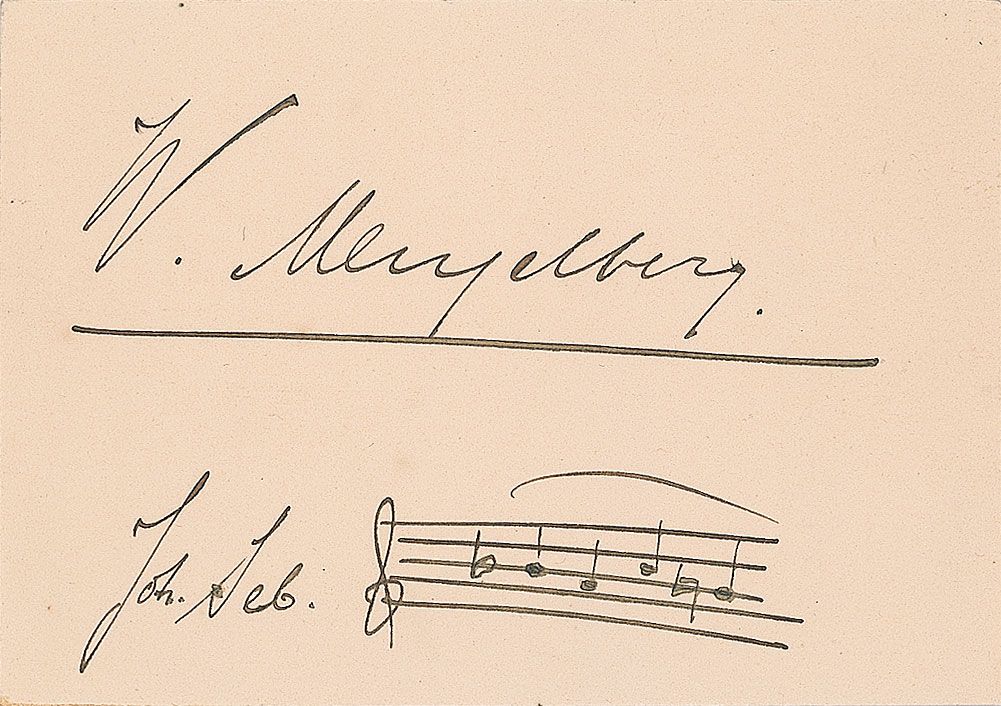 W. Mengelberg.
Joh. Seb.